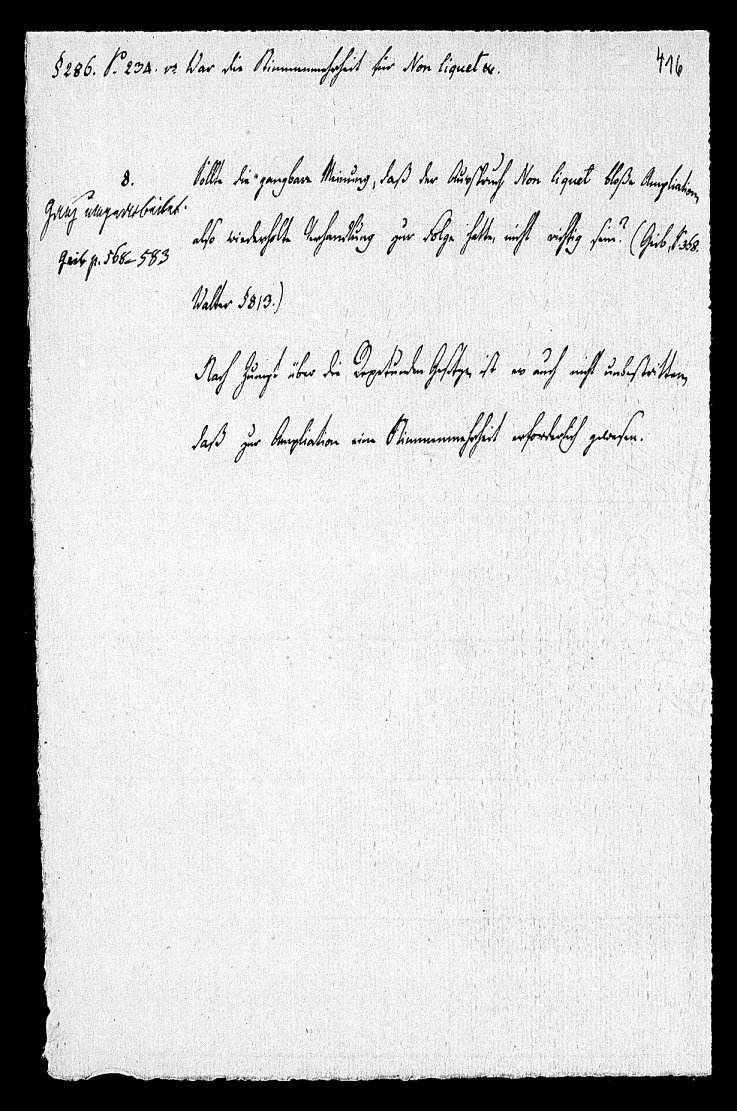 § 286. S. 234. v: War die Stimmenmehrheit für Non liquet etc.
416
8.
Ganz umgearbeitet.
Geib p. 568–583
Sollte die gangbare Meinung, daß der Ausspruch Non liquet bloße Ampliation,
also wiederholte Verhandlung zur Folge hatte, nicht richtig sein? (Geib, S. 368.
Walter § 813.)
Nach über die Gesetze, ist es auch nicht unbestritten,
daß zur Ampliation eine Stimmenmehrheit erforderlich gewesen.